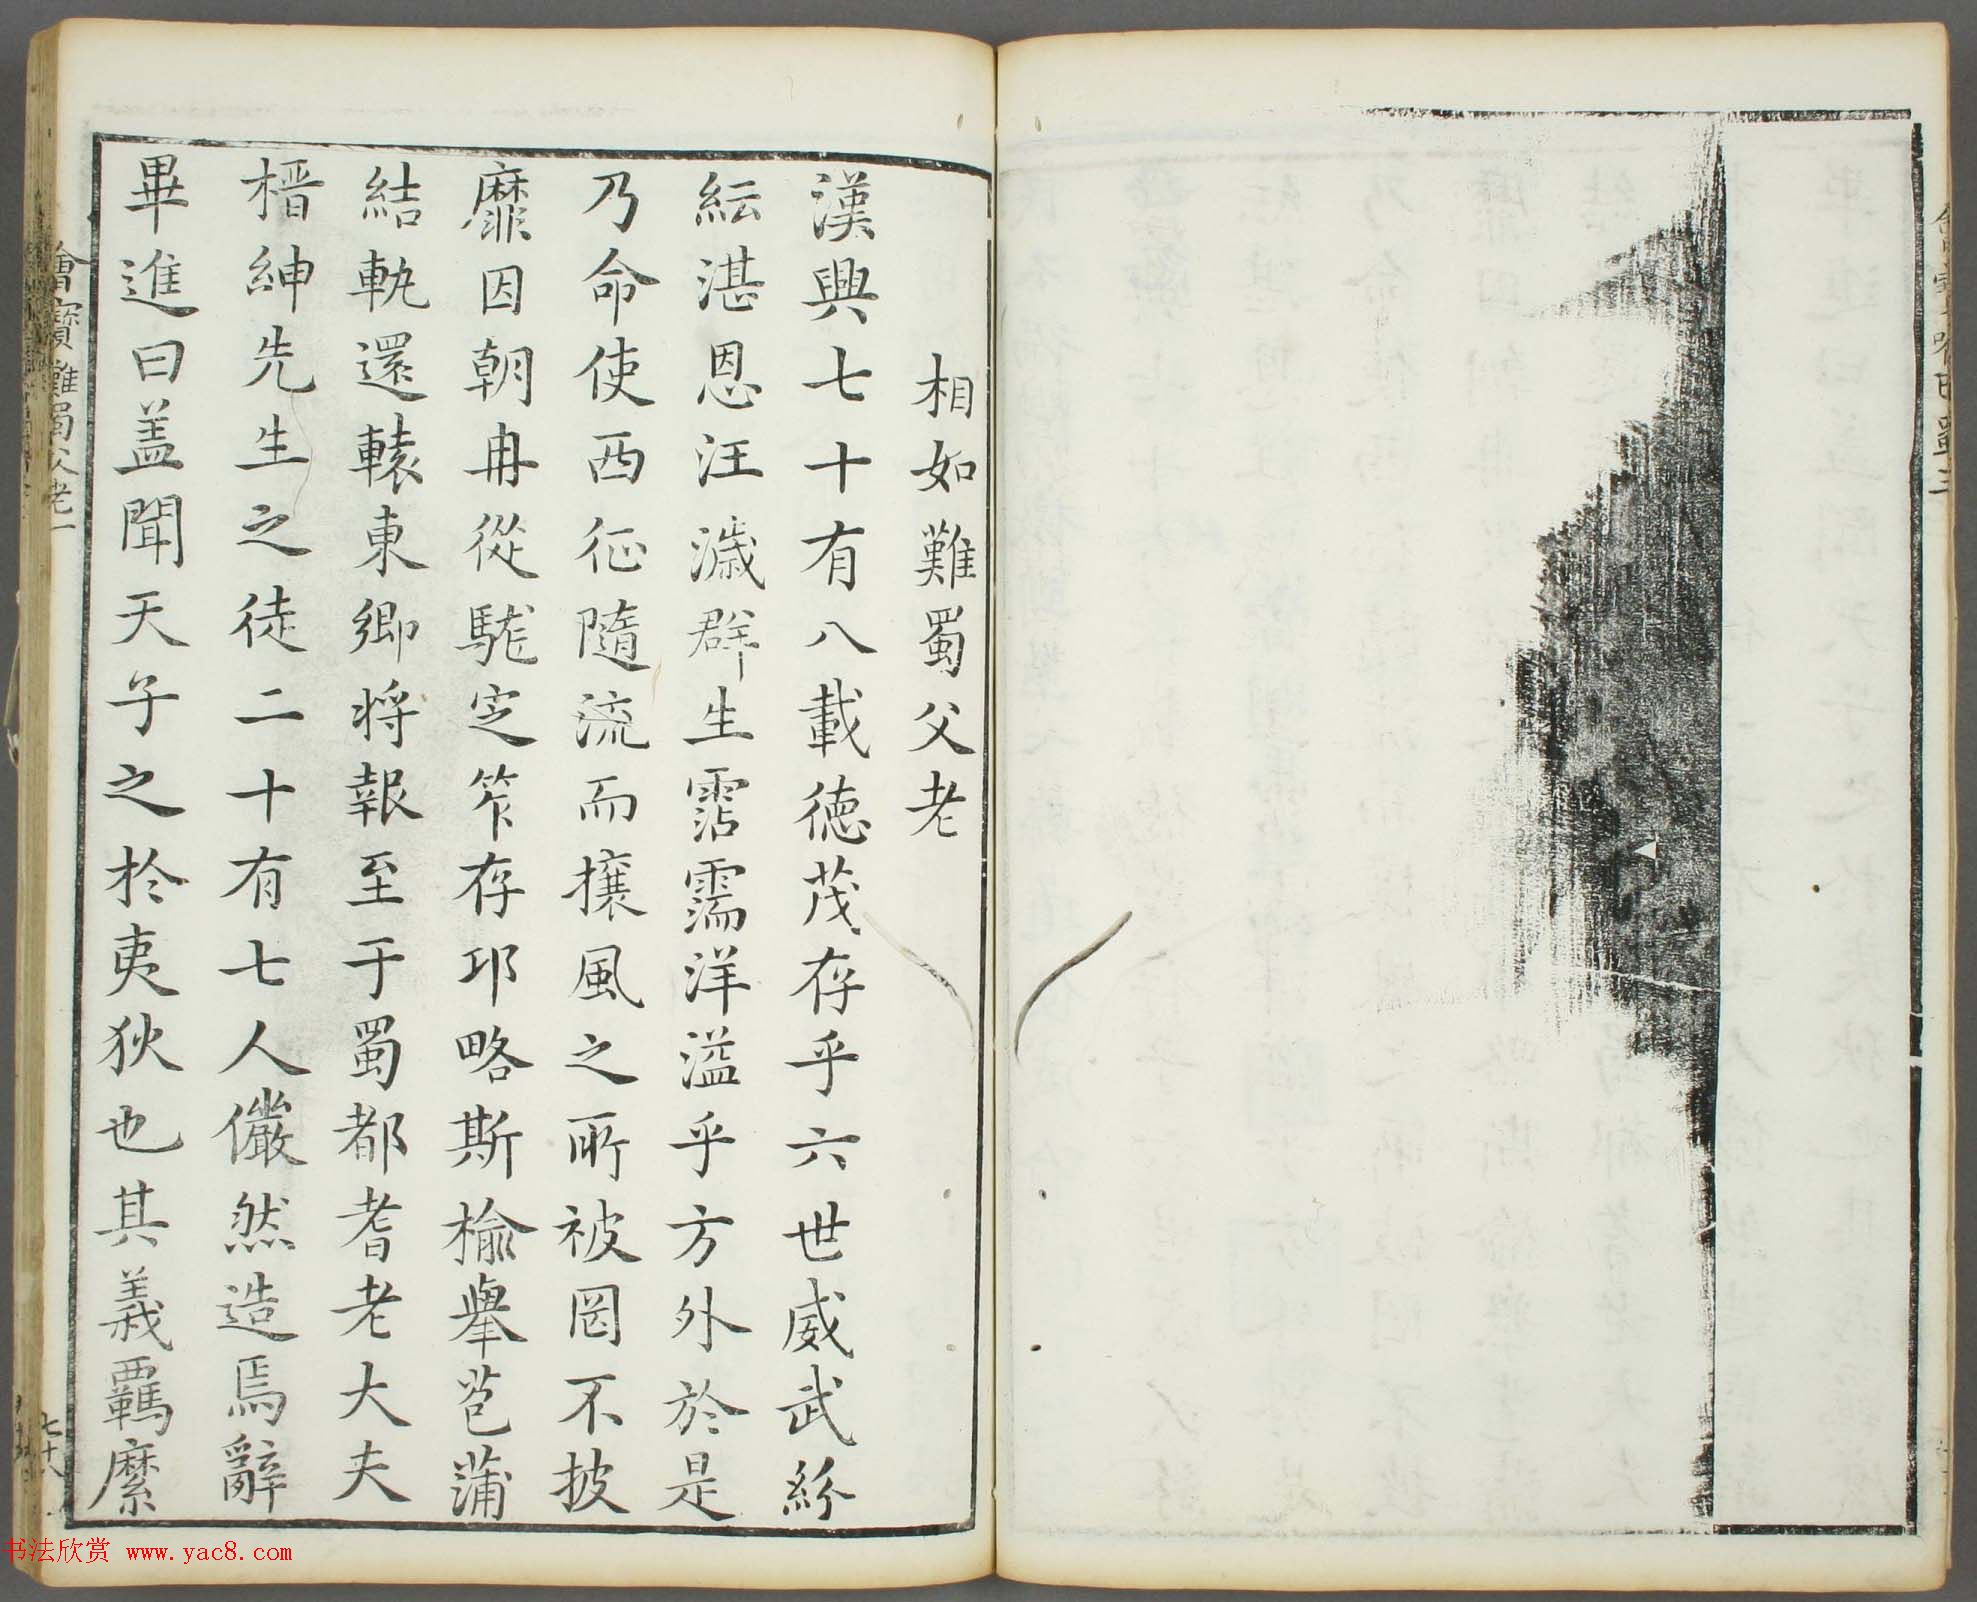 相如難蜀父老
漢興七十有八載德茂存乎六世威武紛
紜湛恩汪濊群生霑濡洋溢乎方外於是
乃命使西征隨流而攘風之所被罔不披
靡因朝冉從駹定笮存邛略斯榆舉苞蒲
結軌還轅東鄉将報至于蜀都耆老大夫
搢紳先生之徒二十有七人儼然造焉辭
畢進曰盖聞天子之於夷狄也其義羈縻
七十八
书法欣赏 www.yac8.com